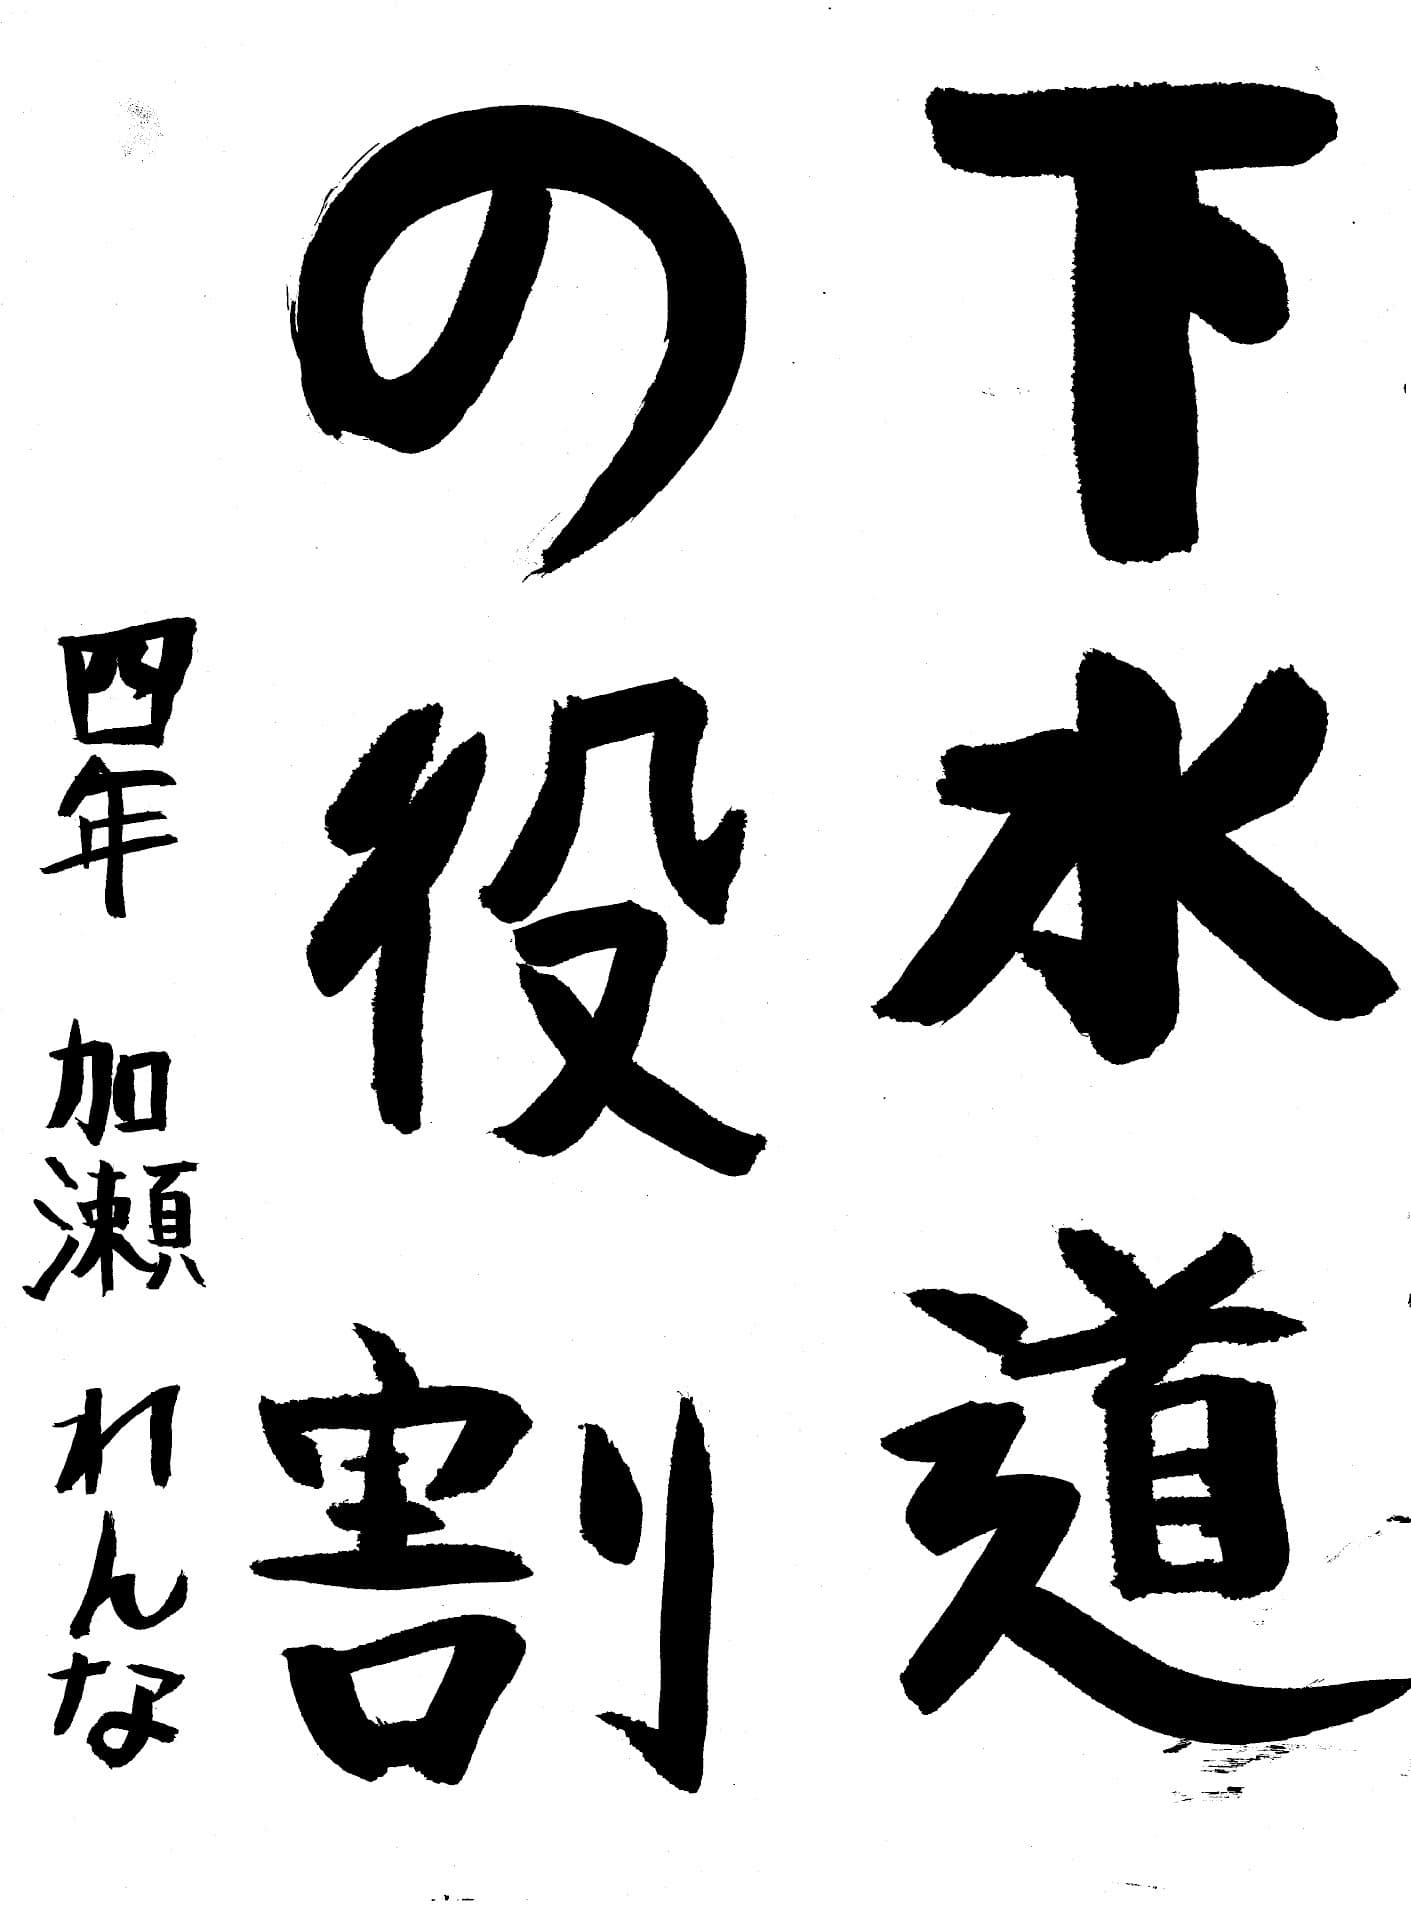 下水道
の役割
四年 加瀬 れんな